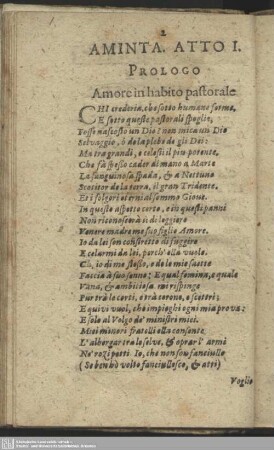 2
AMINTA. ATTO I.
PROLOGO
Amore in habito pastorale
CHI crederia, che sotto humane forme,
E sotto queste pastorali spoglie,
Fosse nascosto un Dio? non mica un Dio
Selvaggio, ò de la plebe de gli Dei:
Ma tra grandi, e celesti il piu potente,
Che fà spesso cader di mano a Marte
La sanguinosa spada, & a Nettuno
Scotitor de la terra, il gran Tridente,
Et i folgori eterni al sommo Giove.
In questo aspetto certo, e in questi panni
Non riconoscerà di leggiero
Venere madre me suo figlio Amore.
Io da lei son constretto di fuggire
E celarmi da lei, perch' ella vuole
Ch' io di me stesso, e de le mie saette
Faccia à suo senno: E qual femina, e quale
Vana, & ambiciosa mi rispinge
Pur trà le corti, e trà corone, e scetri;
E quivi vuol, che impieghi ogni mia prova:
E solo al Volgo de' ministri miei.
Miei minori fratelli ella consente
L' albergar tra le selve, & oprar l' armi
Ne' rozi petti Io, che non son fanciullo
(Se ben hò volto fanciullesco, & atti)
Voglio